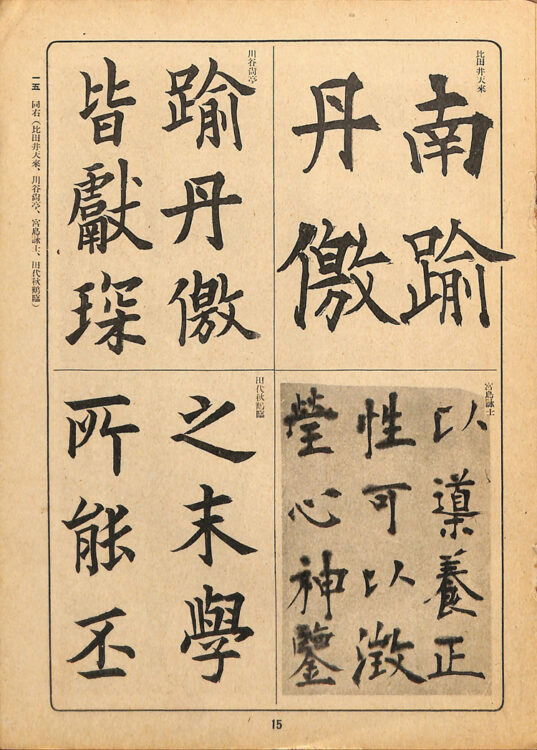 比田井天來
南踰
丹徼
川谷尙亭
踰丹徼
皆獻琛
宮島詠士
以導養正
性可以澂
瑩心神鑒
田代秋鶴臨
之末學
所能丕
一五 同右(比田井天來、川谷尙亭、宮島詠士、田代秋鶴臨)
15